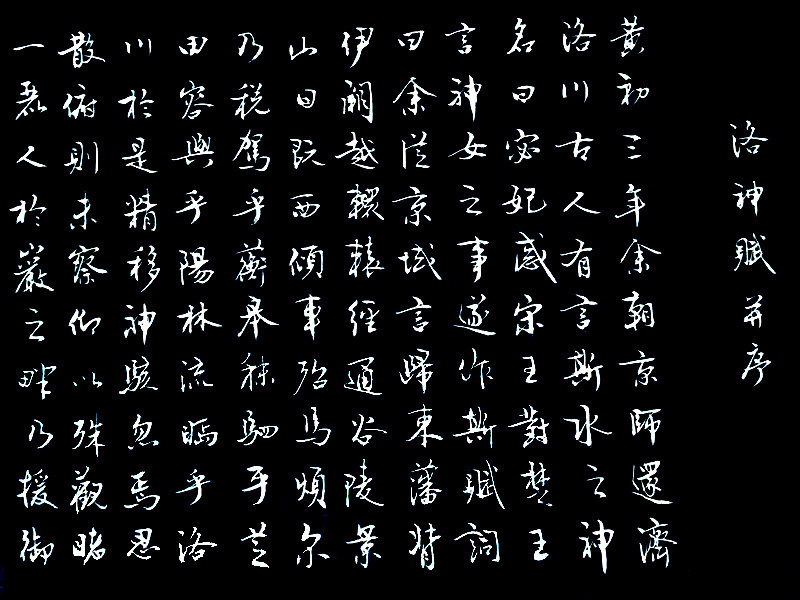 洛神賦并序
黃初三年余朝京師還濟
洛川古人有言斯水之神
名曰宓妃感宋玉對楚王
言神女之事遂作斯賦詞
曰余從京域言歸東藩背
伊闕越轘轅經通谷陵景
山日既西傾車殆馬煩尔
乃稅駕乎蘅皋秣駟乎芝
田容與乎陽林流眄乎洛
川於是精移神駭忽焉思
散俯則未察仰以殊觀睹
一麗人於巖之畔乃援御